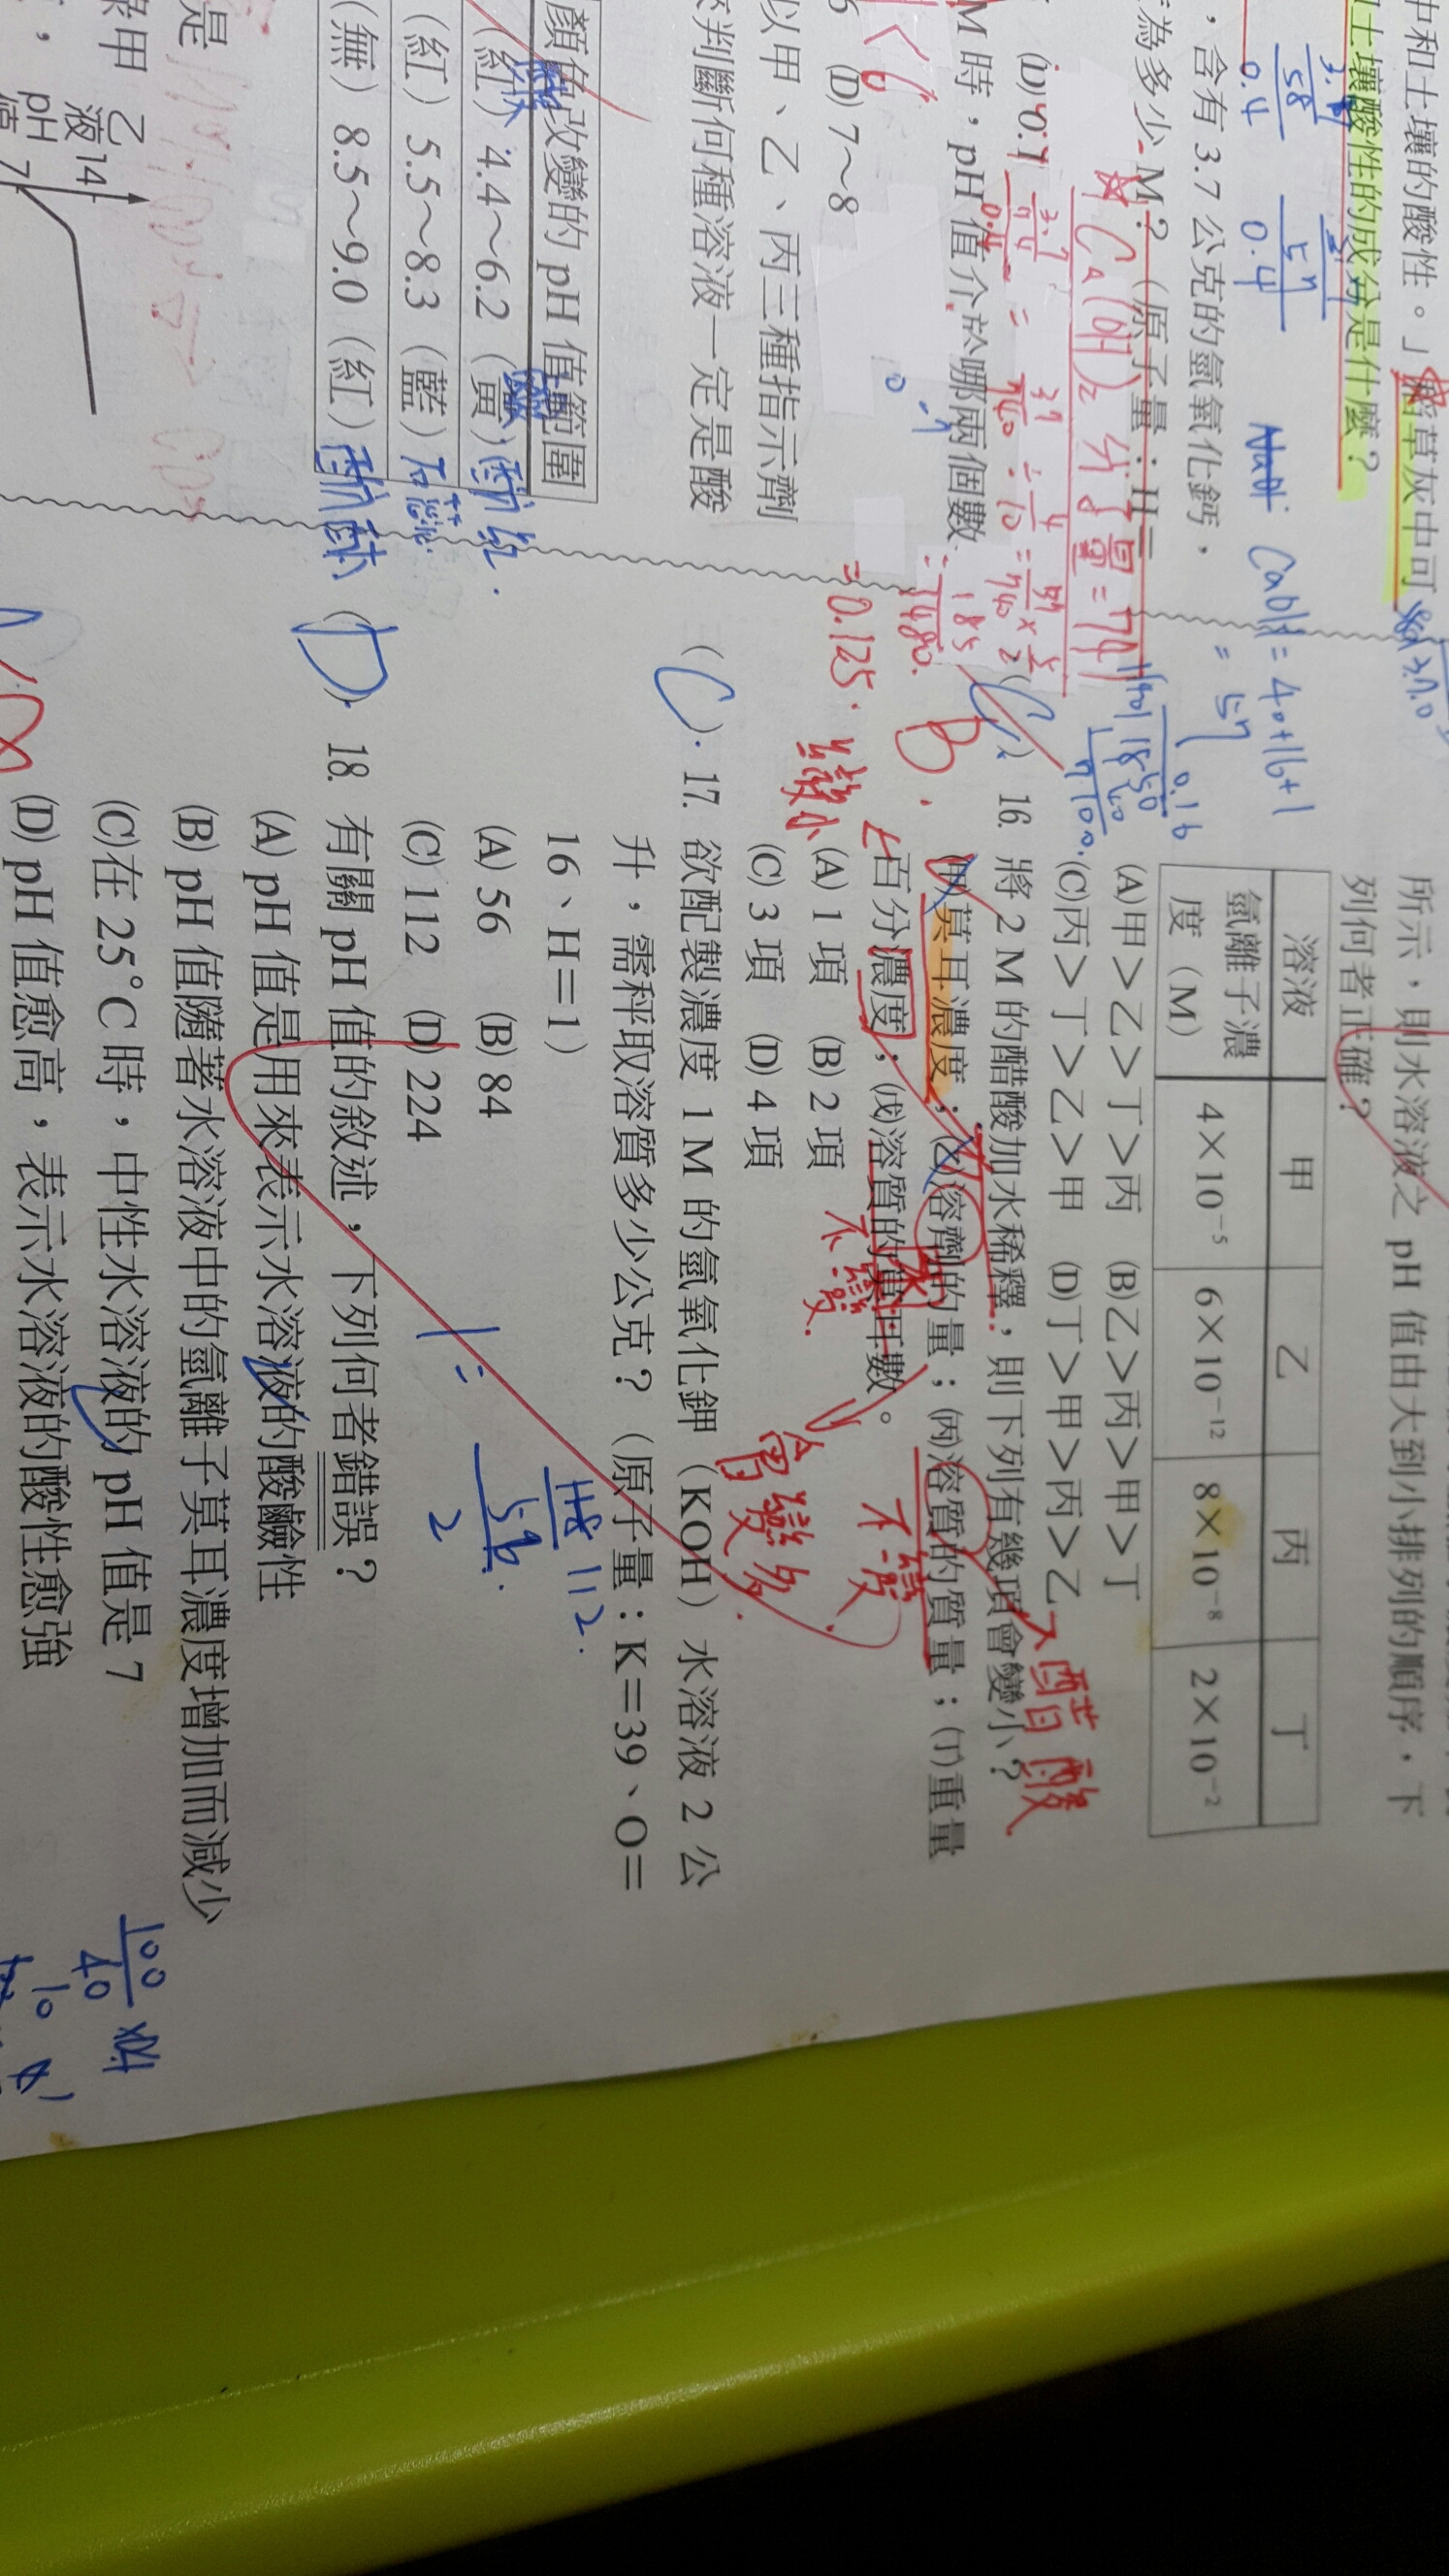 中和土壤的酸性。」稻草灰中可
土壤酸性的成分是什麼？
，含有 3.7 公克的氫氧化鈣，
為多少 M？（原子量：H＝
Ca(OH)2 分子量=74
(D) 0.1
M 時，pH 值介於哪兩個數
(D) 7～8
以甲、乙、丙三種指示劑
判斷何種溶液一定是酸
顏色改變的 pH 值範圍
（紅）4.4～6.2（黃）酚紅
（紅）5.5～8.3（藍）石蕊
（無）8.5～9.0（紅）酚酞
是
甲
乙液 pH 值
14
7
CaOH=40+16+1
=57
=0.125
所示，則水溶液之 pH 值由大到小排列的順序，下
列何者正確？
溶液 甲 乙 丙 丁
氫離子濃度（M） 4×10⁻⁵ 6×10⁻¹² 8×10⁻⁸ 2×10⁻²
(A)甲＞乙＞丁＞丙 (B)乙＞丙＞甲＞丁
(C)丙＞丁＞乙＞甲 (D)丁＞甲＞丙＞乙
醋酸
(C) 16. 將 2 M 的醋酸加水稀釋，則下列有幾項會變小？
B
(甲)莫耳濃度；(乙)溶劑的量；(丙)溶質的質量；(丁)重量
百分濃度；(戊)溶質的莫耳數。
變小
不變
不變
會變多
(A) 1 項 (B) 2 項
(C) 3 項 (D) 4 項
(C) 17. 欲配製濃度 1 M 的氫氧化鉀（KOH）水溶液 2 公
升，需秤取溶質多少公克？（原子量：K＝39、O＝
16、H＝1）
(A) 56 (B) 84
(C) 112 (D) 224
112
1=
56
2
(D) 18. 有關 pH 值的敘述，下列何者錯誤？
(A) pH 值是用來表示水溶液的酸鹼性
(B) pH 值隨著水溶液中的氫離子莫耳濃度增加而減少
(C)在 25°C 時，中性水溶液的 pH 值是 7
(D) pH 值愈高，表示水溶液的酸性愈強
100
40
10